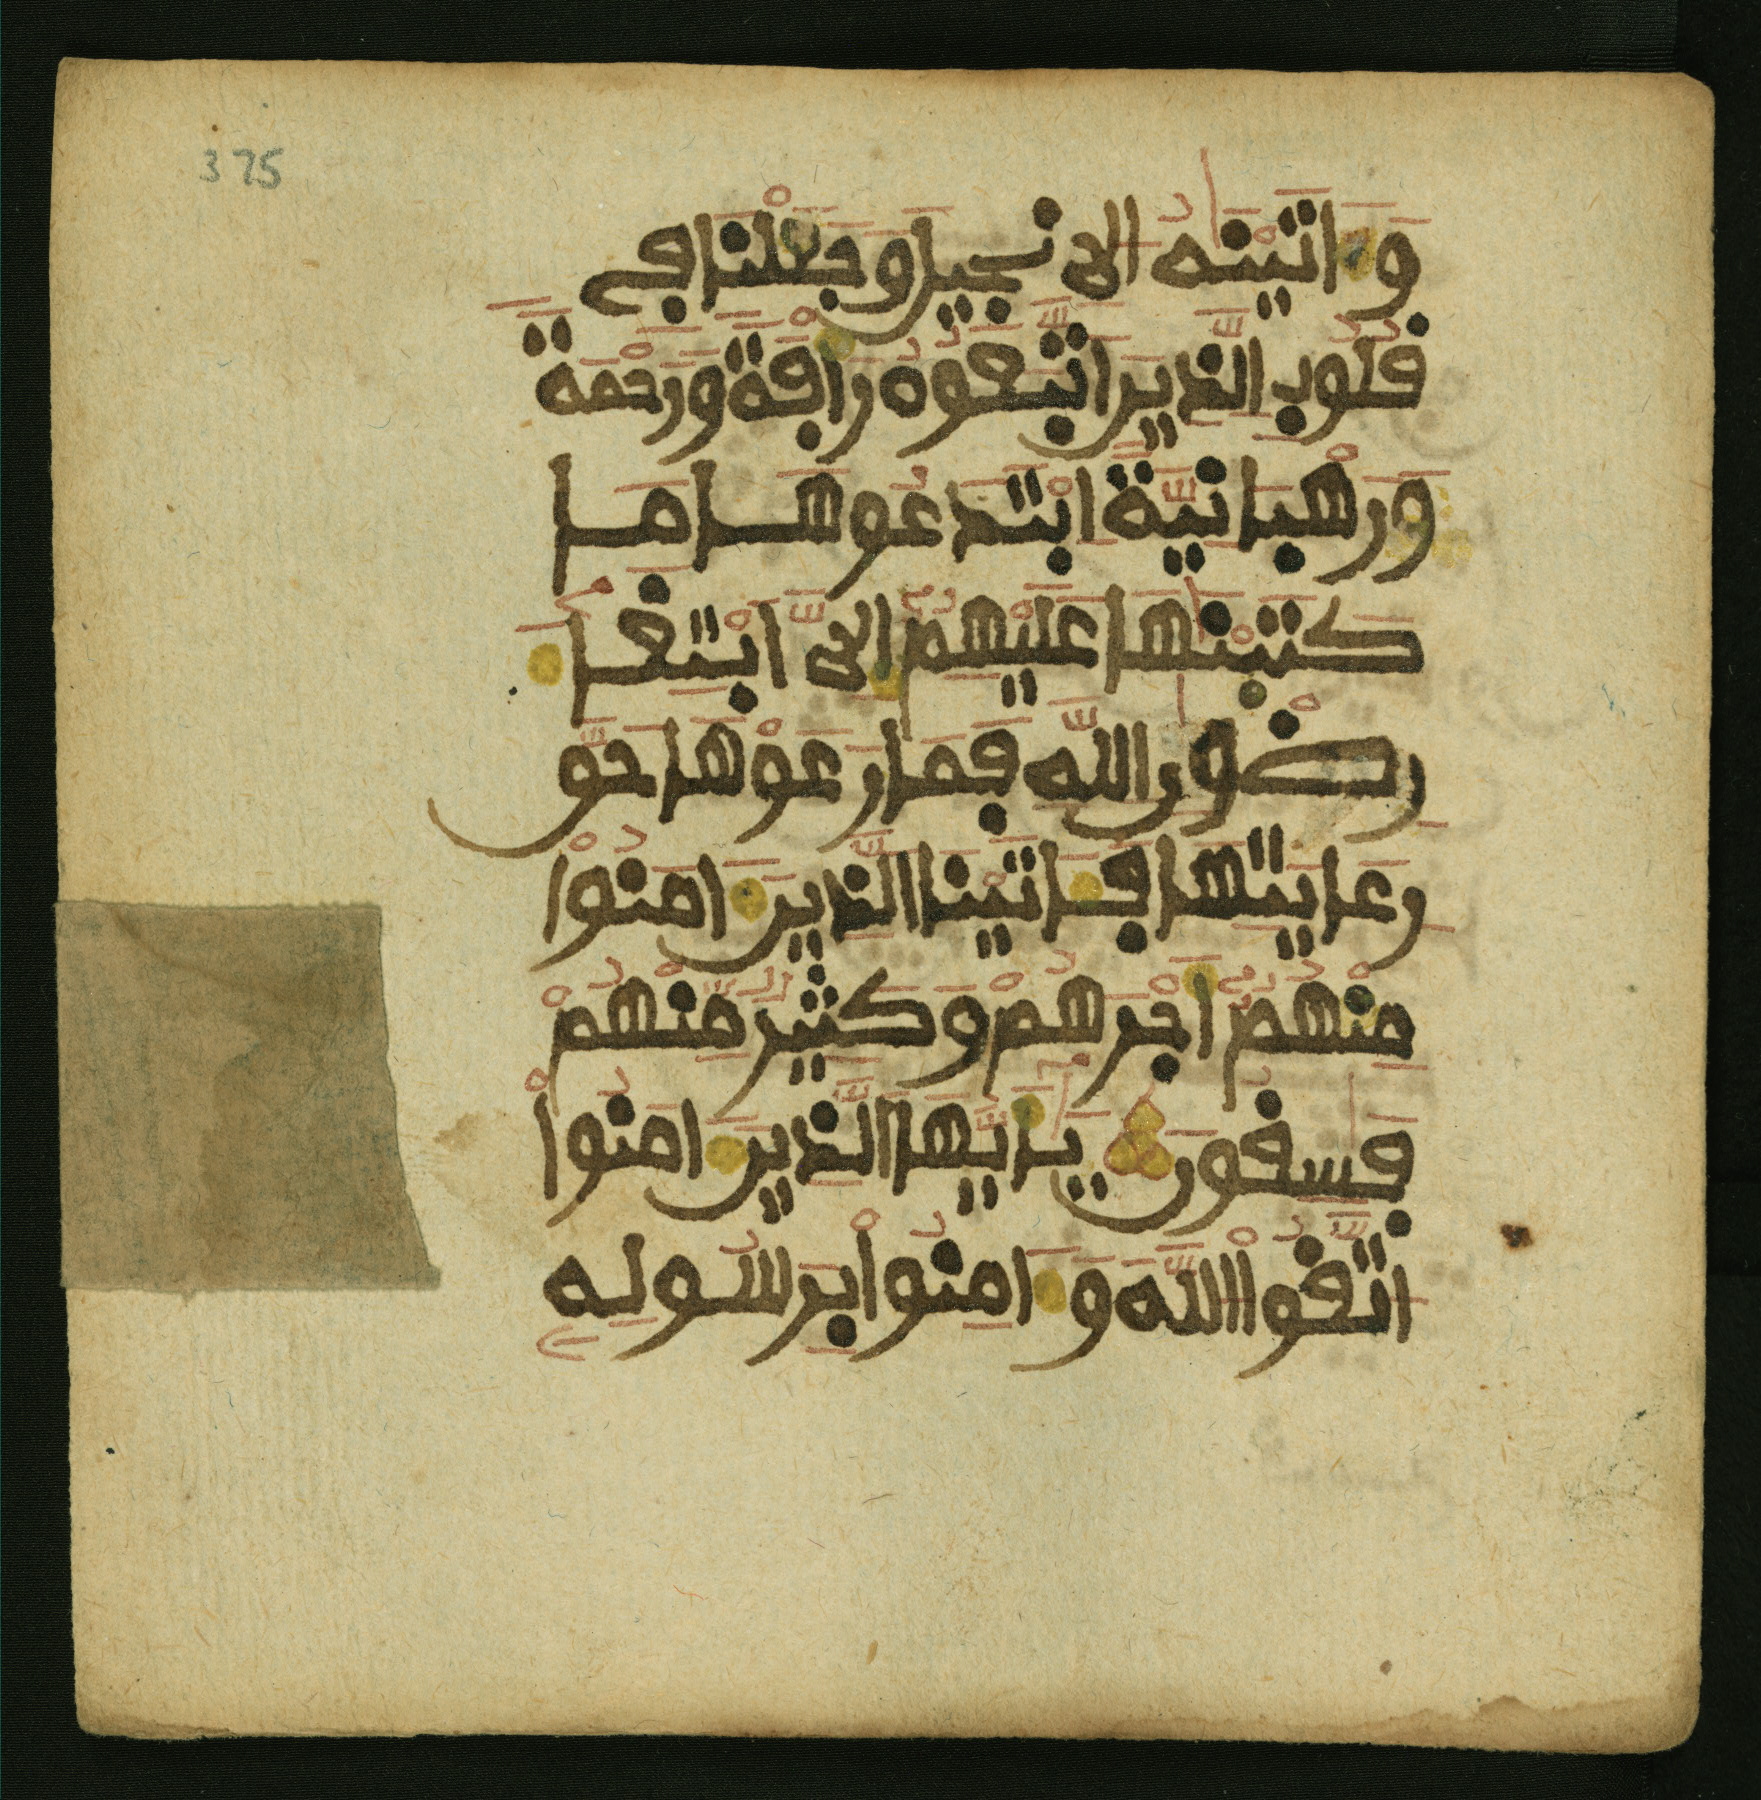 375
وَءاتَيْنَٰهُ الِانجِيلَ وَجَعَلْنَا فِے
قُلُوبِ الَّذِينَ اتَّبَعُوهُ رَأْفَةً وَرَحْمَةً
وَرَهْبَانِيَّةً ابْتَدَعُوهَا مَا
كَتَبْنَٰهَا عَلَيْهِمُ إِلَّا ابْتِغَآءَ
رِضْوَٰنِ اللَّهِ فَمَا رَعَوْهَا حَقَّ
رِعَايَتِهَا فَـَٔاتَيْنَا الَّذِينَ ءامَنُواْ
مِنْهُمُ أَجْرَهُمْ وَكَثِيرٌ مِّنْهُمْ
فَٰسِقُونَ يَٰٓأَيُّهَا الَّذِينَ ءامَنُواْ
اتَّقُواْ اللَّهَ وَءامِنُواْ بِرَسُولِهِۦ